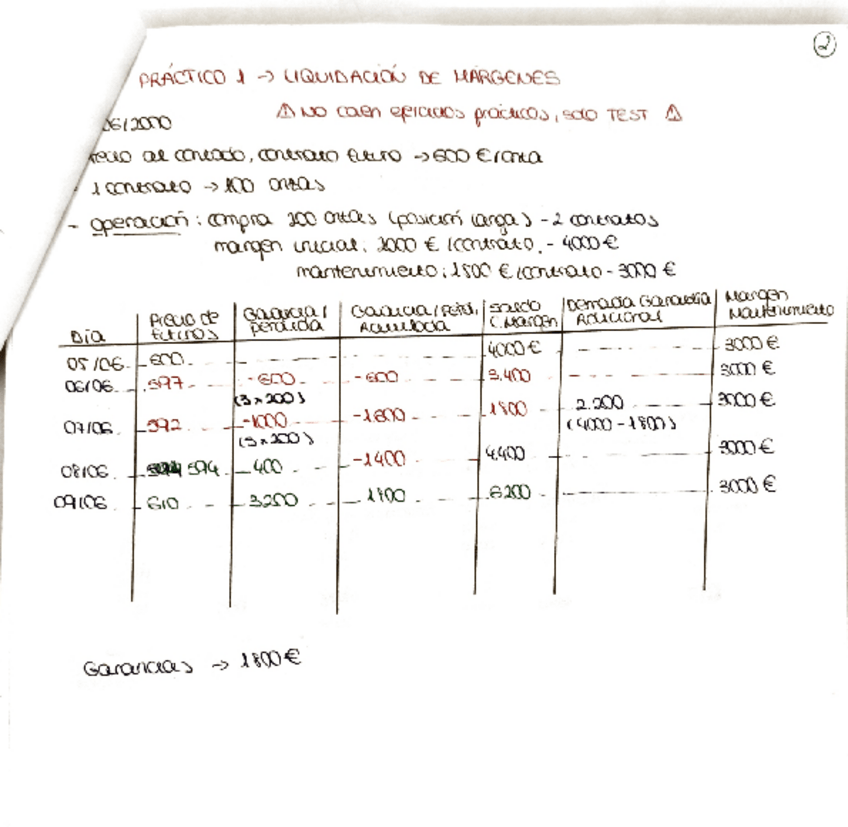 2
PRÁCTICO 1 → LIQUIDACIÓN DE MÁRGENES
⚠ NO caen ejercicios prácticos, solo TEST ⚠
06/2000
al contado, contrato futuro → 600 €/onza
- 1 contrato → 100 onzas
- operación: compra 200 onzas (posición larga) - 2 contratos
margen inicial: 2000 €/contrato - 4000 €
mantenimiento: 1500 €/contrato - 3000 €
Día | Precio de futuros | Ganancia/pérdida | Ganancia/Pérd. Acumulada | Saldo C. Margen | Demada Garantía Adicional | Margen Mantenimiento
05/06 | 600 | | | 4000 € | | 3000 €
06/06 | 597 | -600 (3x200) | -600 | 3.400 | | 3000 €
07/06 | 592 | -1000 (5x200) | -1600 | 1800 | 2.200 (4000-1800) | 3000 €
08/06 | 594 | 400 | -1400 | 4.400 | | 3000 €
09/06 | 610 | 3.200 | 1800 | 6200 | | 3000 €
Ganancias → 1800 €